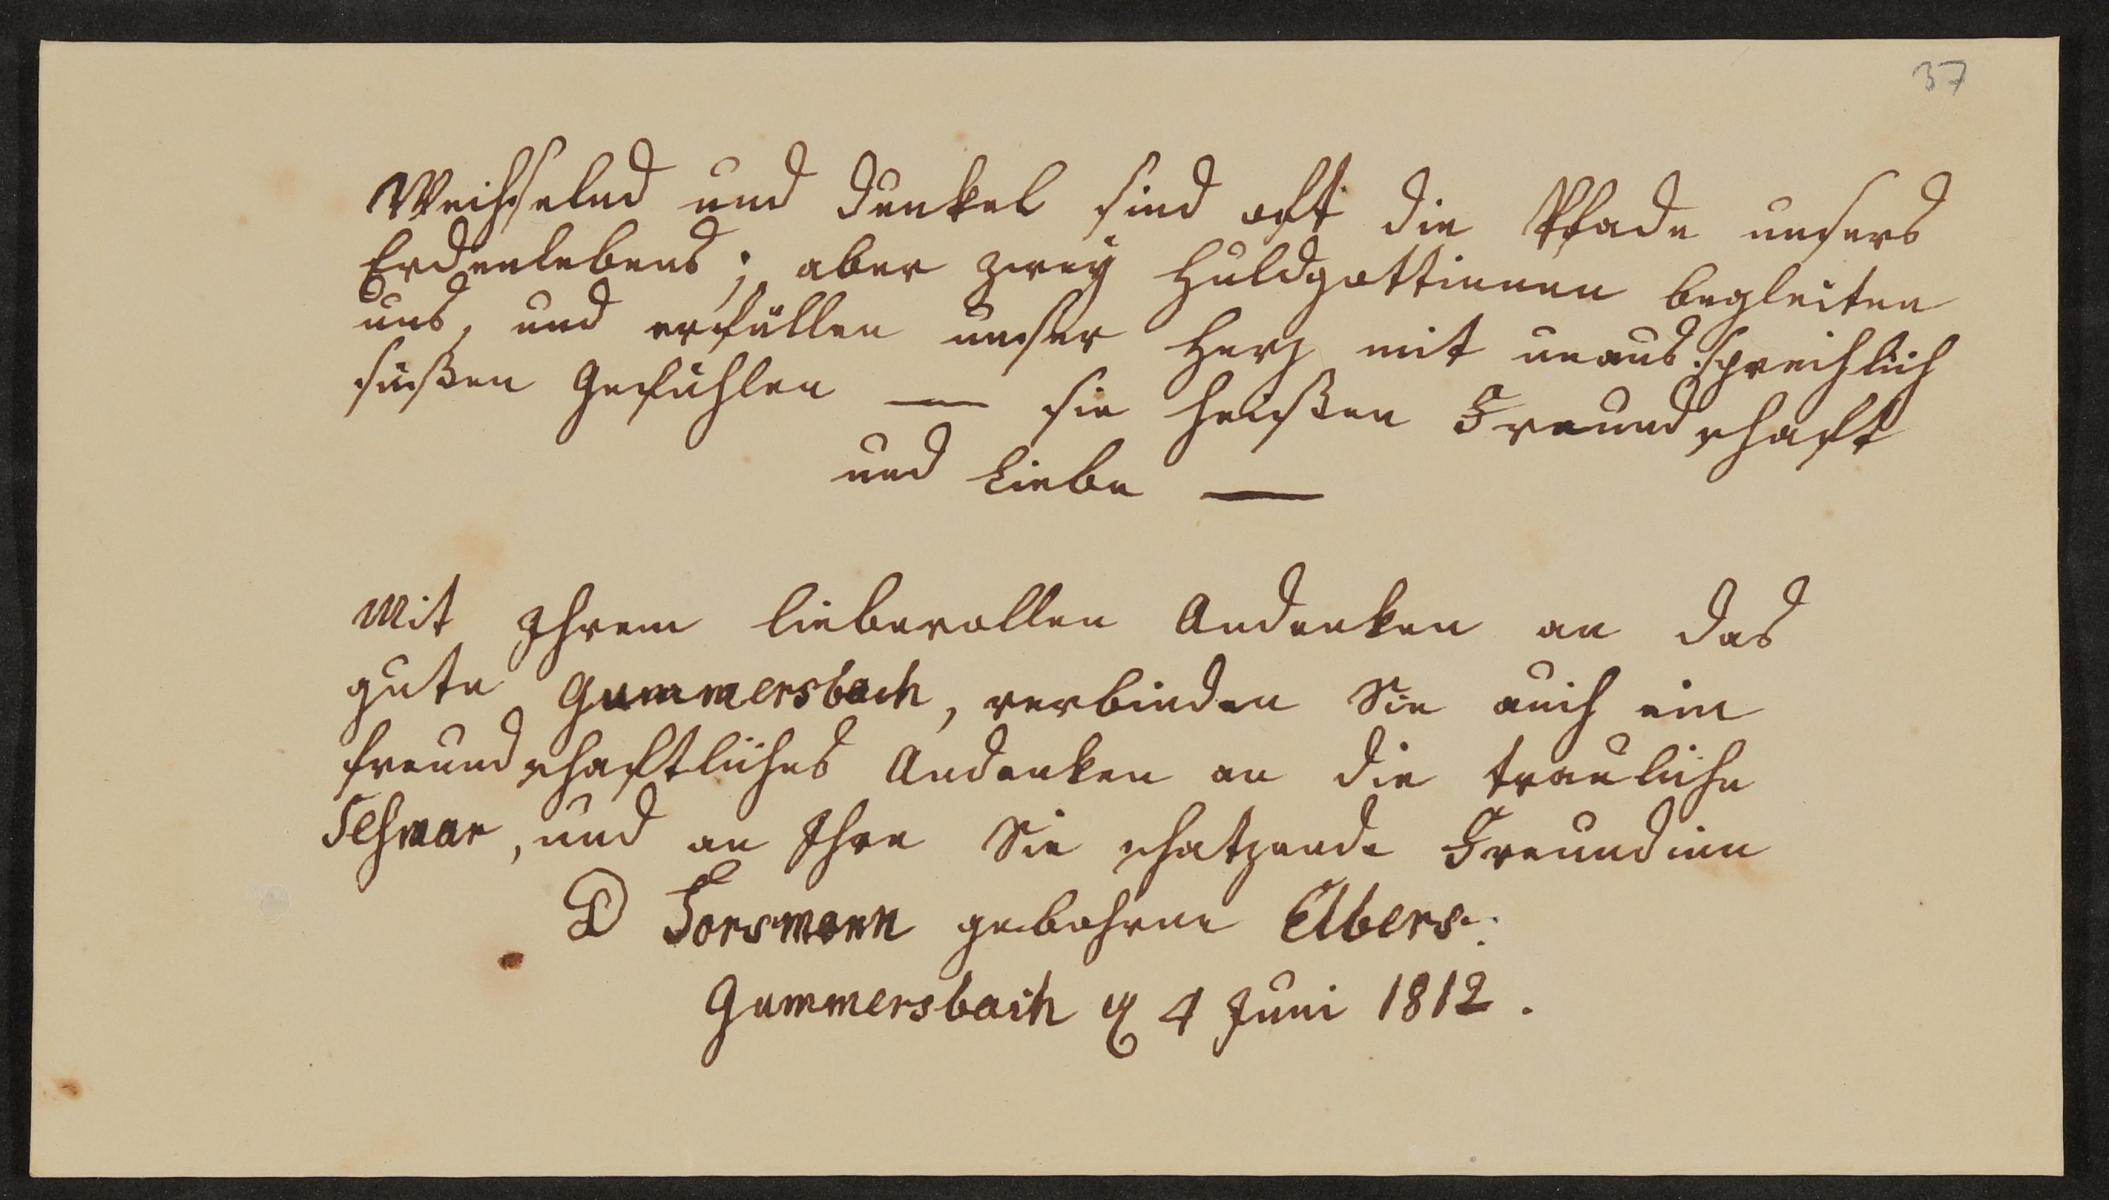 37
Wechselnd und dunkel sind oft die Pfade unsers
Erdenlebens; aber zwey Huldgottinnen begleiten
uns, und erfüllen unser Herz mit unaussprechlich
süßen Gefühlen — sie heißen Freundschaft
und Liebe —
Mit Ihrem liebevollen Andenken an das
gute Gummersbach, verbinden Sie auch ein
freundschaftliches Andenken an die trauliche
und an Ihre Sie schatzende Freundinn
D gebohrne Elbers.
Gummersbach 4 Juni 1812.